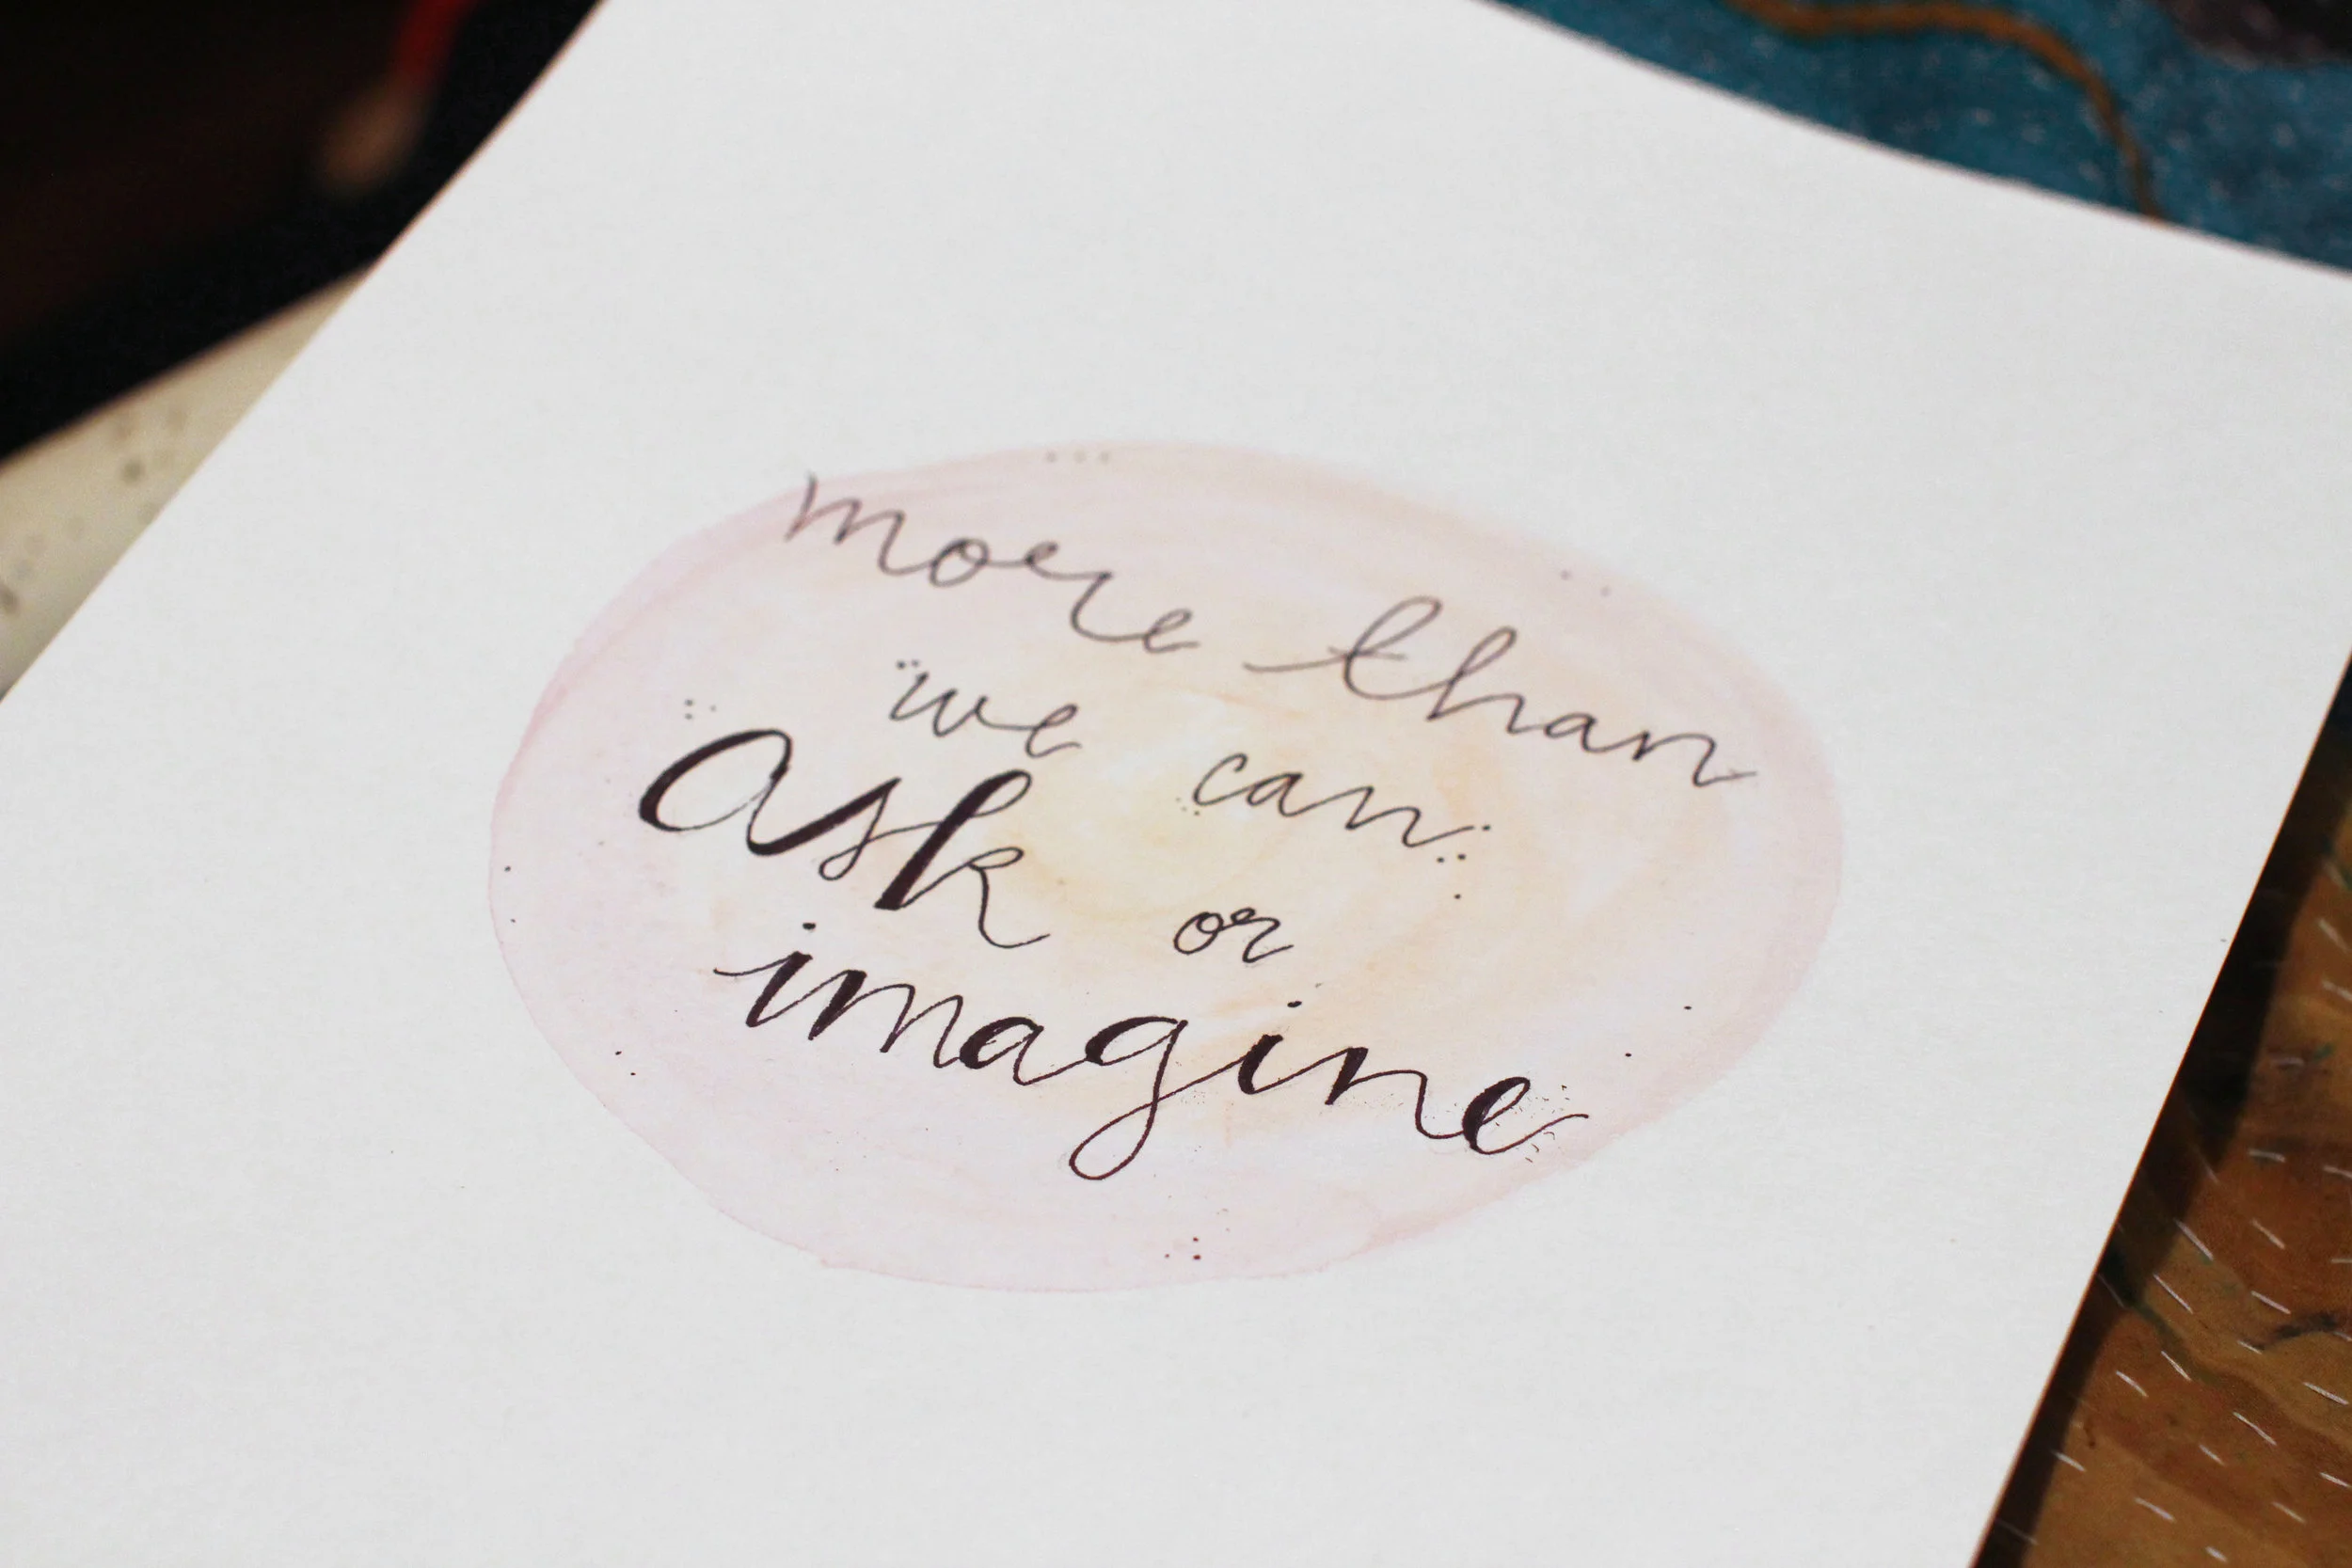 more than
we can
ask or
imagine